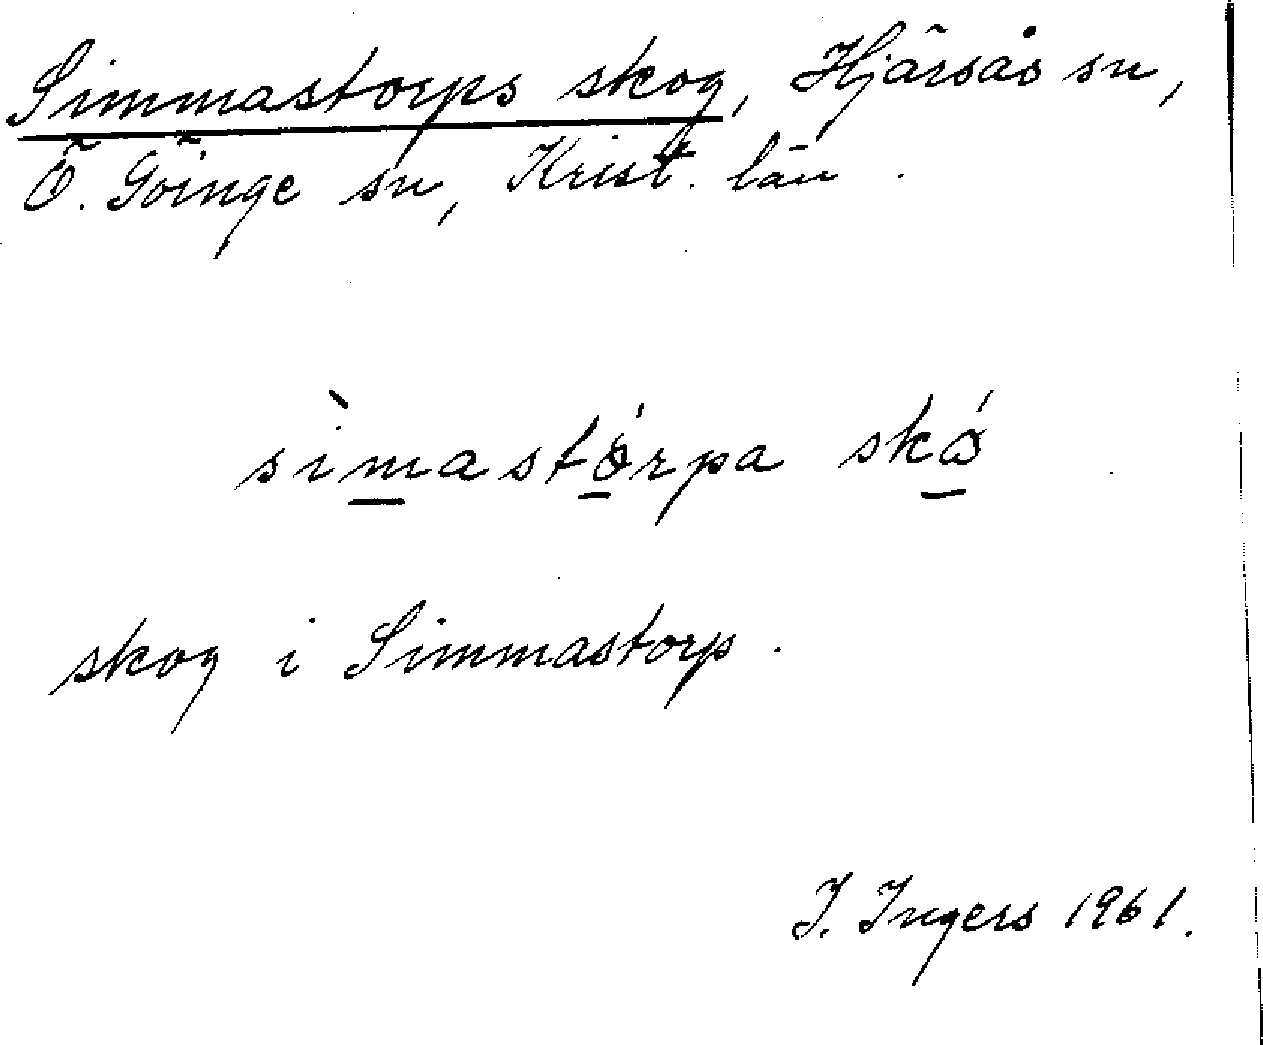 Simmastorps skog, Hjärsås sn,
Ö. Göinge sn, Krist. län.
sìmastórpa skó
skog i Simmastorp.
I. Ingers 1961.